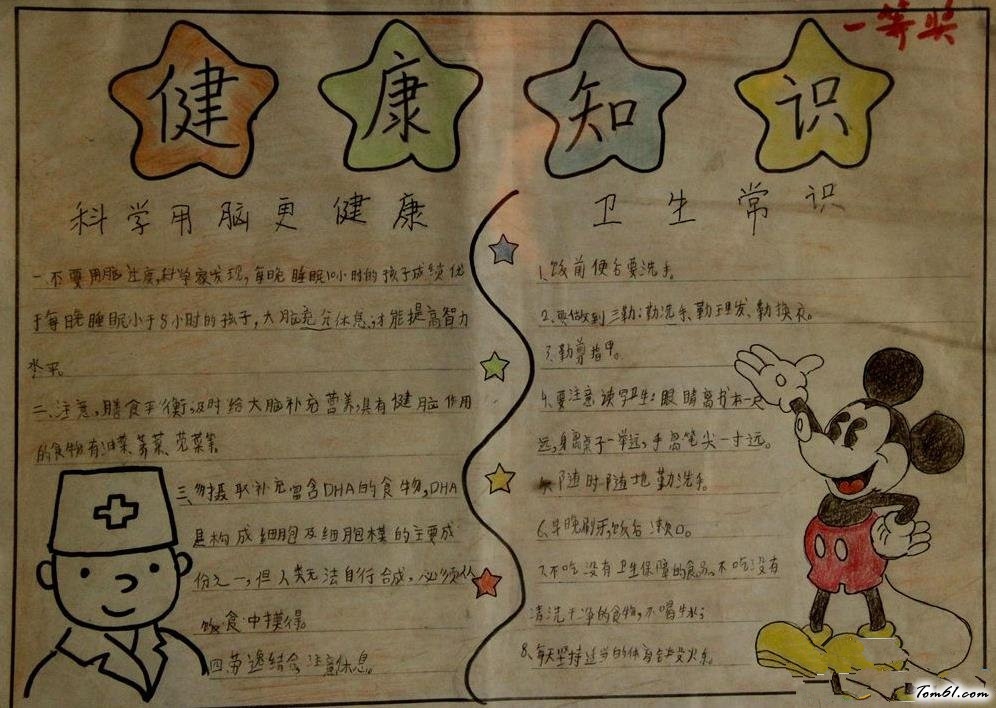 一等奖
健康知识
科学用脑更健康
一.不要用脑过度,科学家发现,每晚睡眠10小时的孩子成绩优
于每晚睡眠小于8小时的孩子,大脑充分休息,才能提高智力
水平。
二、注意,膳食平衡,及时给大脑补充营养,具有健脑作用
的食物有油菜、荠菜、菠菜等。
三、勿摄取补充富含DHA的食物,DHA
是构成细胞及细胞膜的主要成
份之一,但人类无法自行合成,必须从
饮食中摸得。
四、劳逸结合,注意休息。
卫生常识
1、饭前便后要洗手。
2、要做到三勤:勤洗手、勤理发、勤换衣。
3、勤剪指甲。
4、要注意读写卫生:眼睛离书本一尺
远,身离桌子一拳远,手离笔尖一寸远。
随时随地勤洗手。
6、早晚刷牙,饭后漱口。
7、不吃没有卫生保障的食品。不吃没有
清洗干净的食物,不喝生水;
8、每天坚持适当的体育
Tom61.com